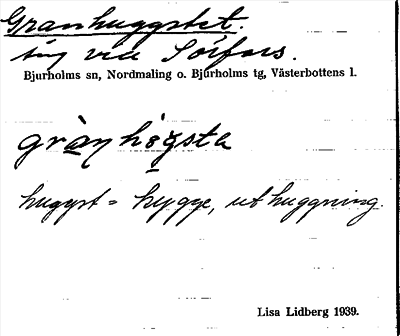 Granhuggstet.
äng vid Sörfors.
Bjurholms sn, Nordmaling o. Bjurholms tg, Västerbottens l.
grànhöģsta
huggst = hygge, uthuggning.
Lisa Lidberg 1939.